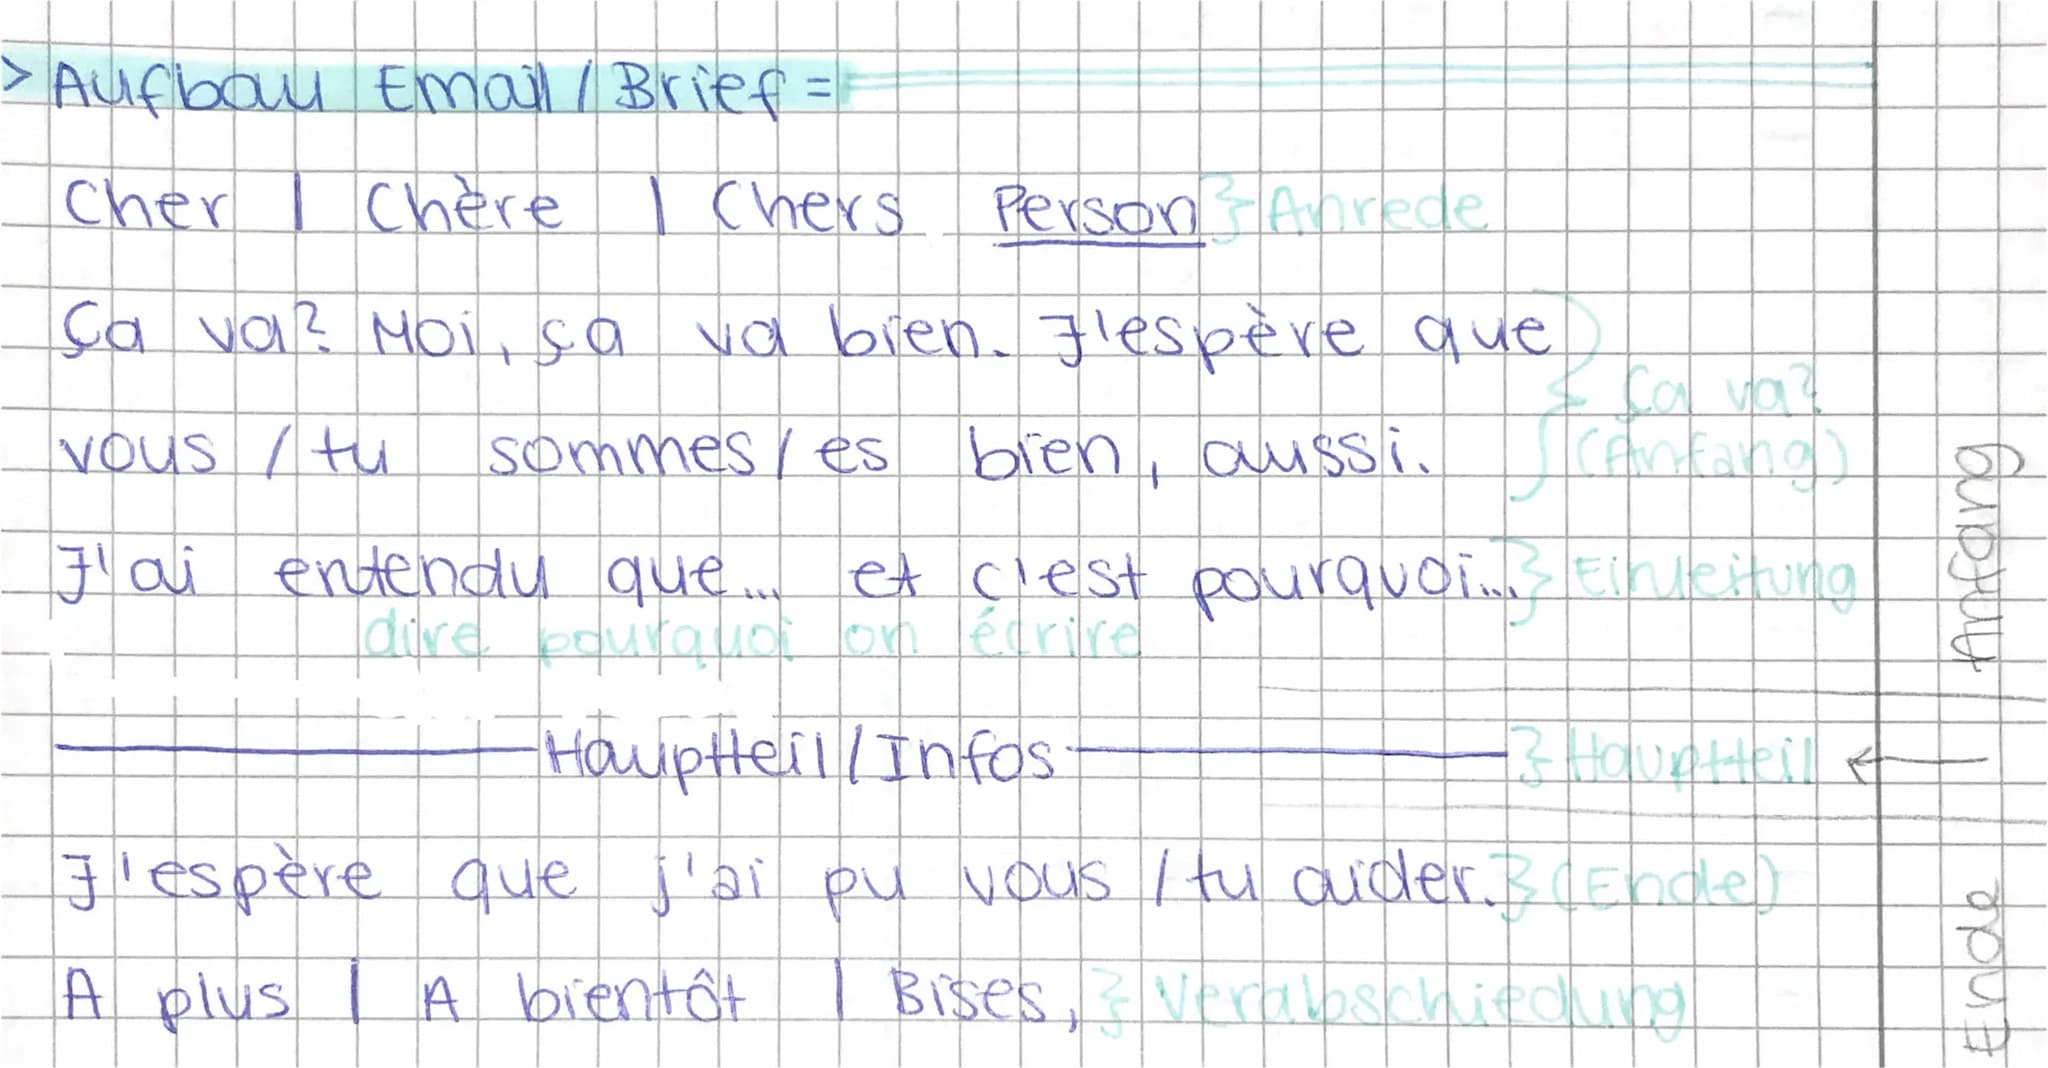 > Aufbau Email / Brief =
Cher | Chère | Chers Person } Anrede
Ça va? Moi, ça va bien. J'espère que
Ça va?
vous / tu sommes / es bien, aussi. } (Anfang)
J'ai entendu que... et c'est pourquoi... } Einleitung
dire pourquoi on écrire
Anfang
Hauptteil / Infos } Hauptteil ←
J'espère que j'ai pu vous / tu aider. } (Ende)
A plus | A bientôt | Bises, } Verabschiedung
Ende